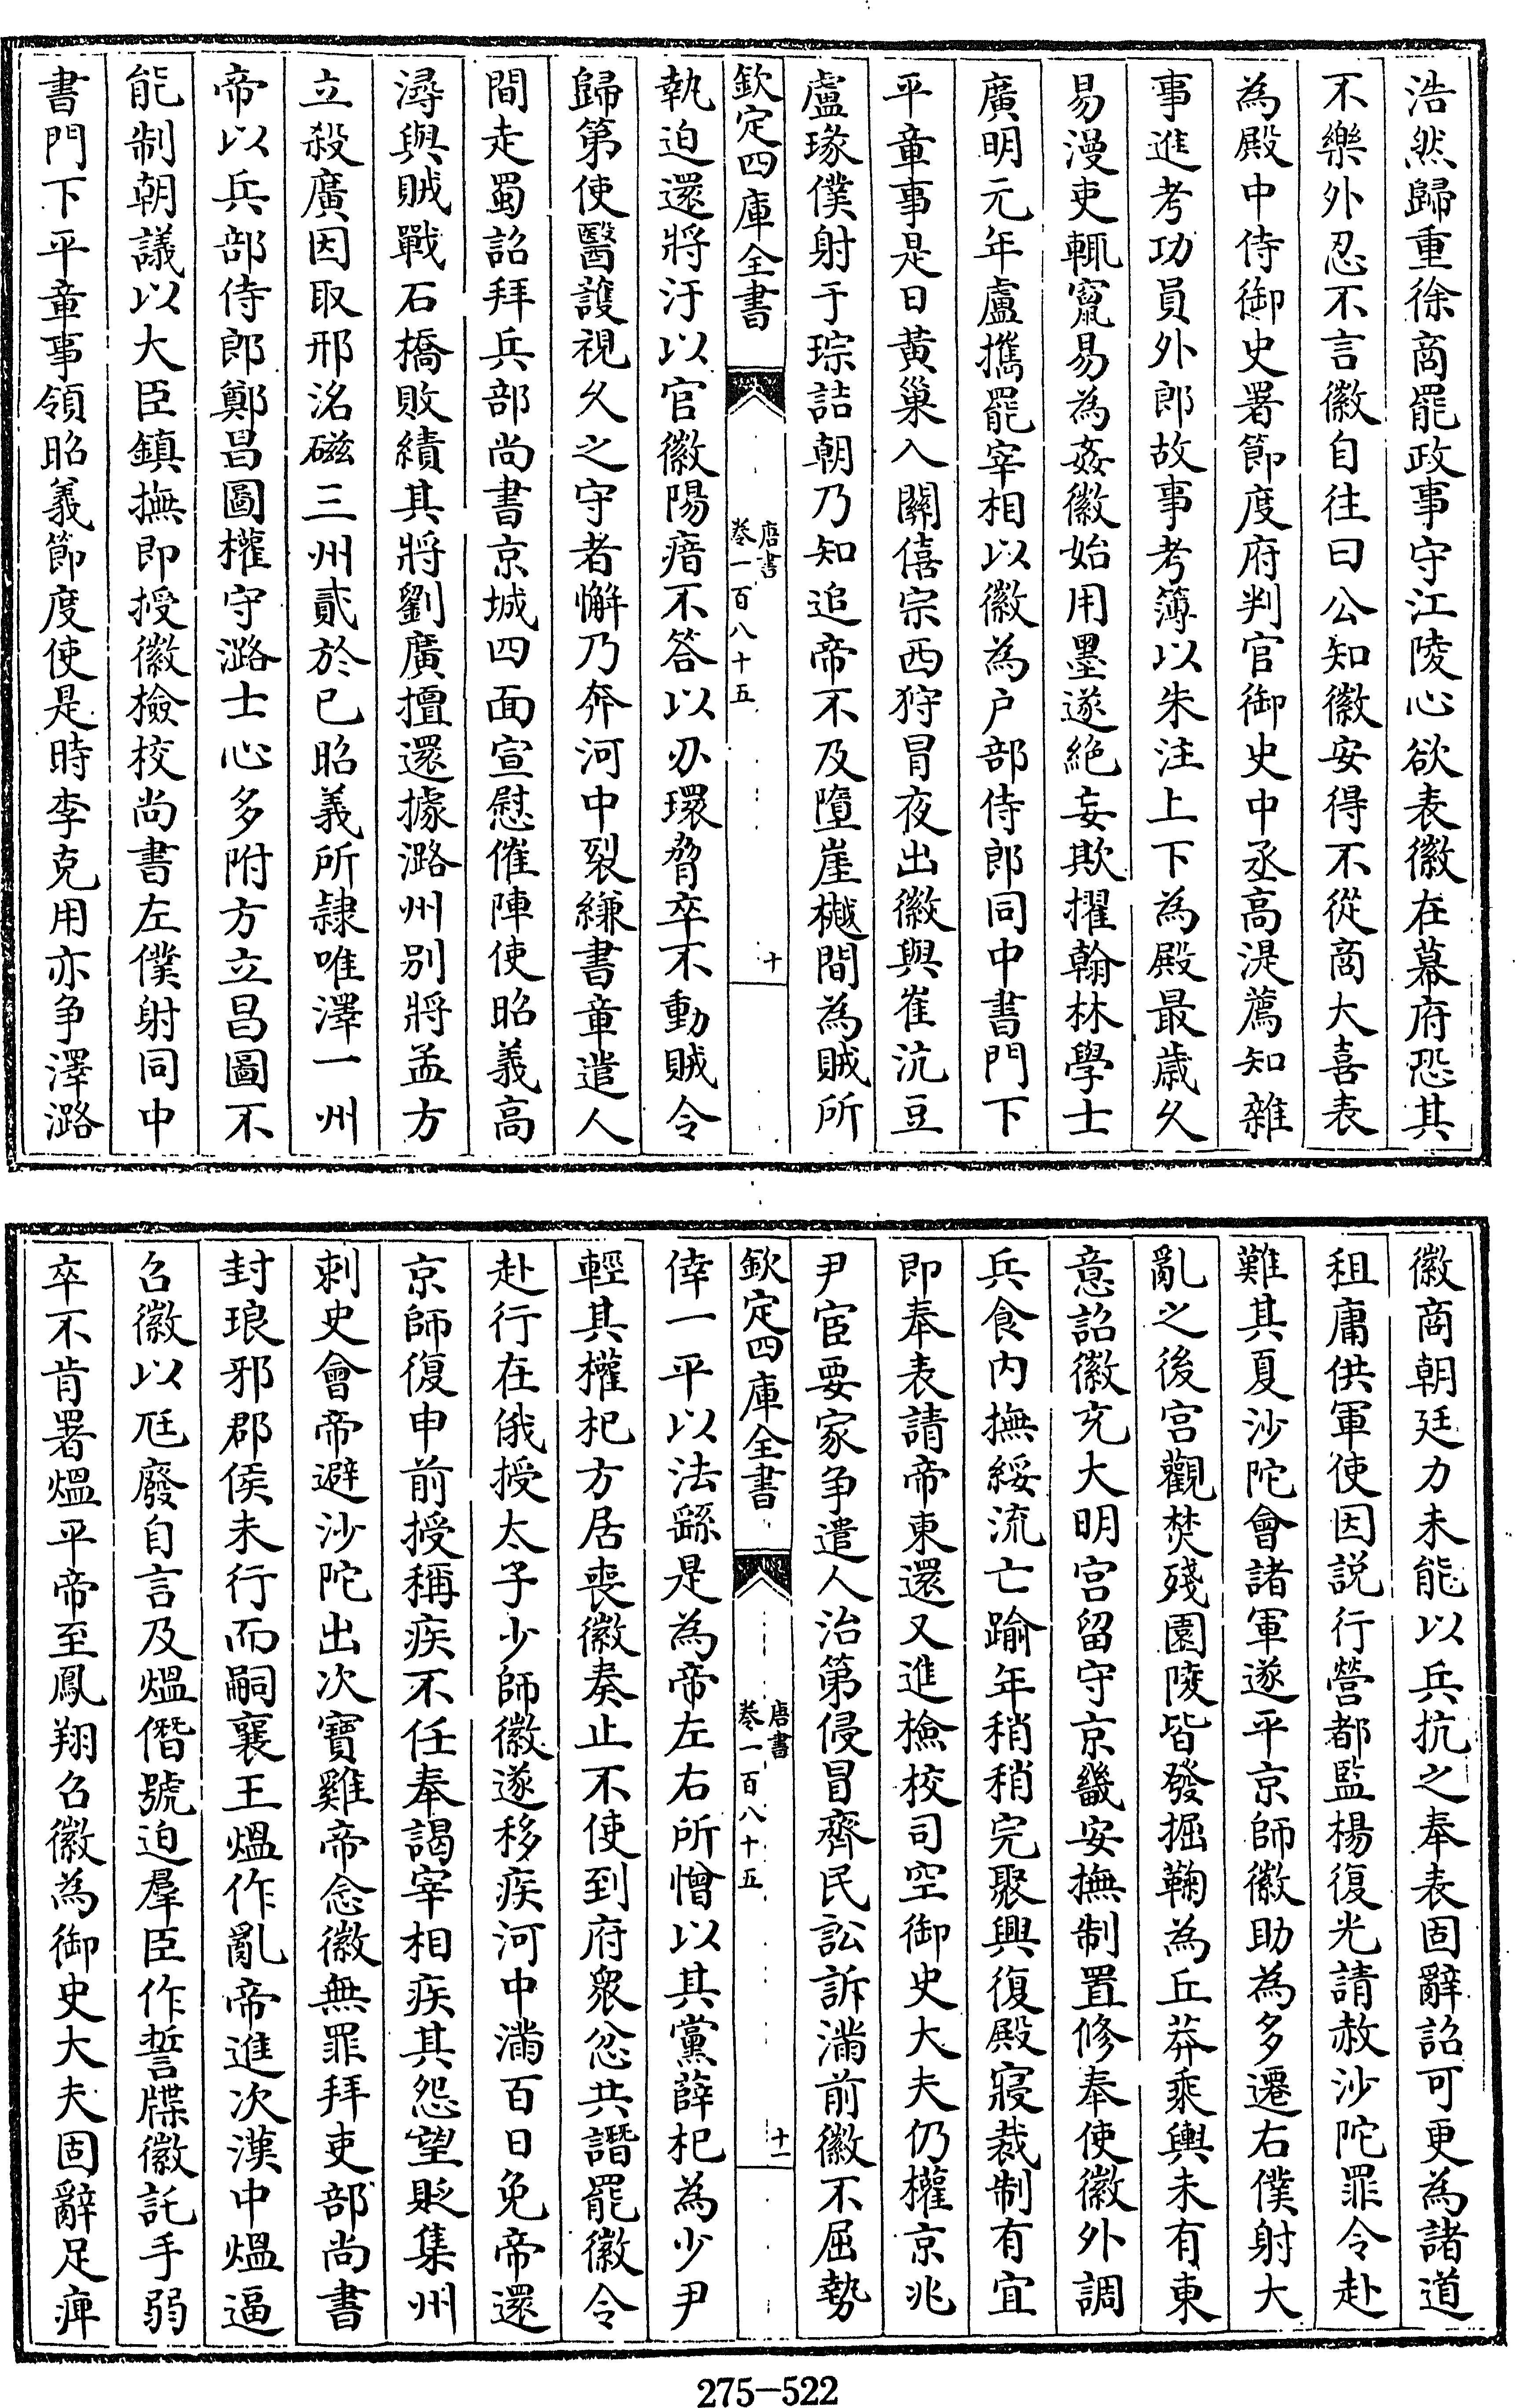 浩然歸重徐商罷政事守江陵心欲表徽在幕府恐其
不樂外忍不言徽自往曰公知徽安得不從商大喜表
為殿中侍御史署節度府判官御史中丞高湜薦知雜
事進考功員外郎故事考簿以朱注上下為殿最歲久
易漫吏輒竄易為姦徽始用墨遂絕妄欺擢翰林學士
廣明元年盧攜罷宰相以徽為户部侍郎同中書門下
平章事是日黃巢入關僖宗西狩冒夜出徽與崔沆豆
盧瑑僕射于琮詰朝乃知追帝不及墮崖樾間為賊所
欽定四庫全書
唐書
卷一百八十五
十
執迫還將汙以官徽陽瘖不答以刃環脅卒不動賊令
歸第使醫護視久之守者懈乃奔河中裂縑書章遣人
間走蜀詔拜兵部尚書京城四面宣慰催陣使昭義高
潯與賊戰石橋敗績其將劉廣擅還據潞州別將孟方
立殺廣因取邢洺磁三州貳於已昭義所隸唯澤一州
帝以兵部侍郎鄭昌圖權守潞士心多附方立昌圖不
能制朝議以大臣鎮撫即授徽檢校尚書左僕射同中
書門下平章事領昭義節度使是時李克用亦爭澤潞
徽商朝廷力未能以兵抗之奉表固辭詔可更為諸道
租庸供軍使因説行營都監楊復光請赦沙陀罪令赴
難其夏沙陀會諸軍遂平京師徽助為多遷右僕射大
亂之後宫觀焚殘園陵皆發掘鞠為丘莽乘輿未有東
意詔徽充大明宫留守京畿安撫制置修奉使徽外調
兵食内撫綏流亡踰年稍稍完聚興復殿寢裁制有宜
即奉表請帝東還又進檢校司空御史大夫仍權京兆
尹宦要家爭遣人治第侵冒齊民訟訴滿前徽不屈勢
欽定四庫全書
唐書
卷一百八十五
十一
倖一平以法繇是為帝左右所憎以其黨薛杞為少尹
輕其權杞方居喪徽奏止不使到府衆忿共譖罷徽令
赴行在俄授太子少師徽遂移疾河中滿百日免帝還
京師復申前授稱疾不任奉謁宰相疾其怨望貶集州
刺史會帝避沙陀出次寶雞帝念徽無罪拜吏部尚書
封琅邪郡侯未行而嗣襄王熅作亂帝進次漢中熅逼
召徽以尫廢自言及熅僭號迫羣臣作誓牒徽託手弱
卒不肯署熅平帝至鳳翔召徽為御史大夫固辭足痺
275-522